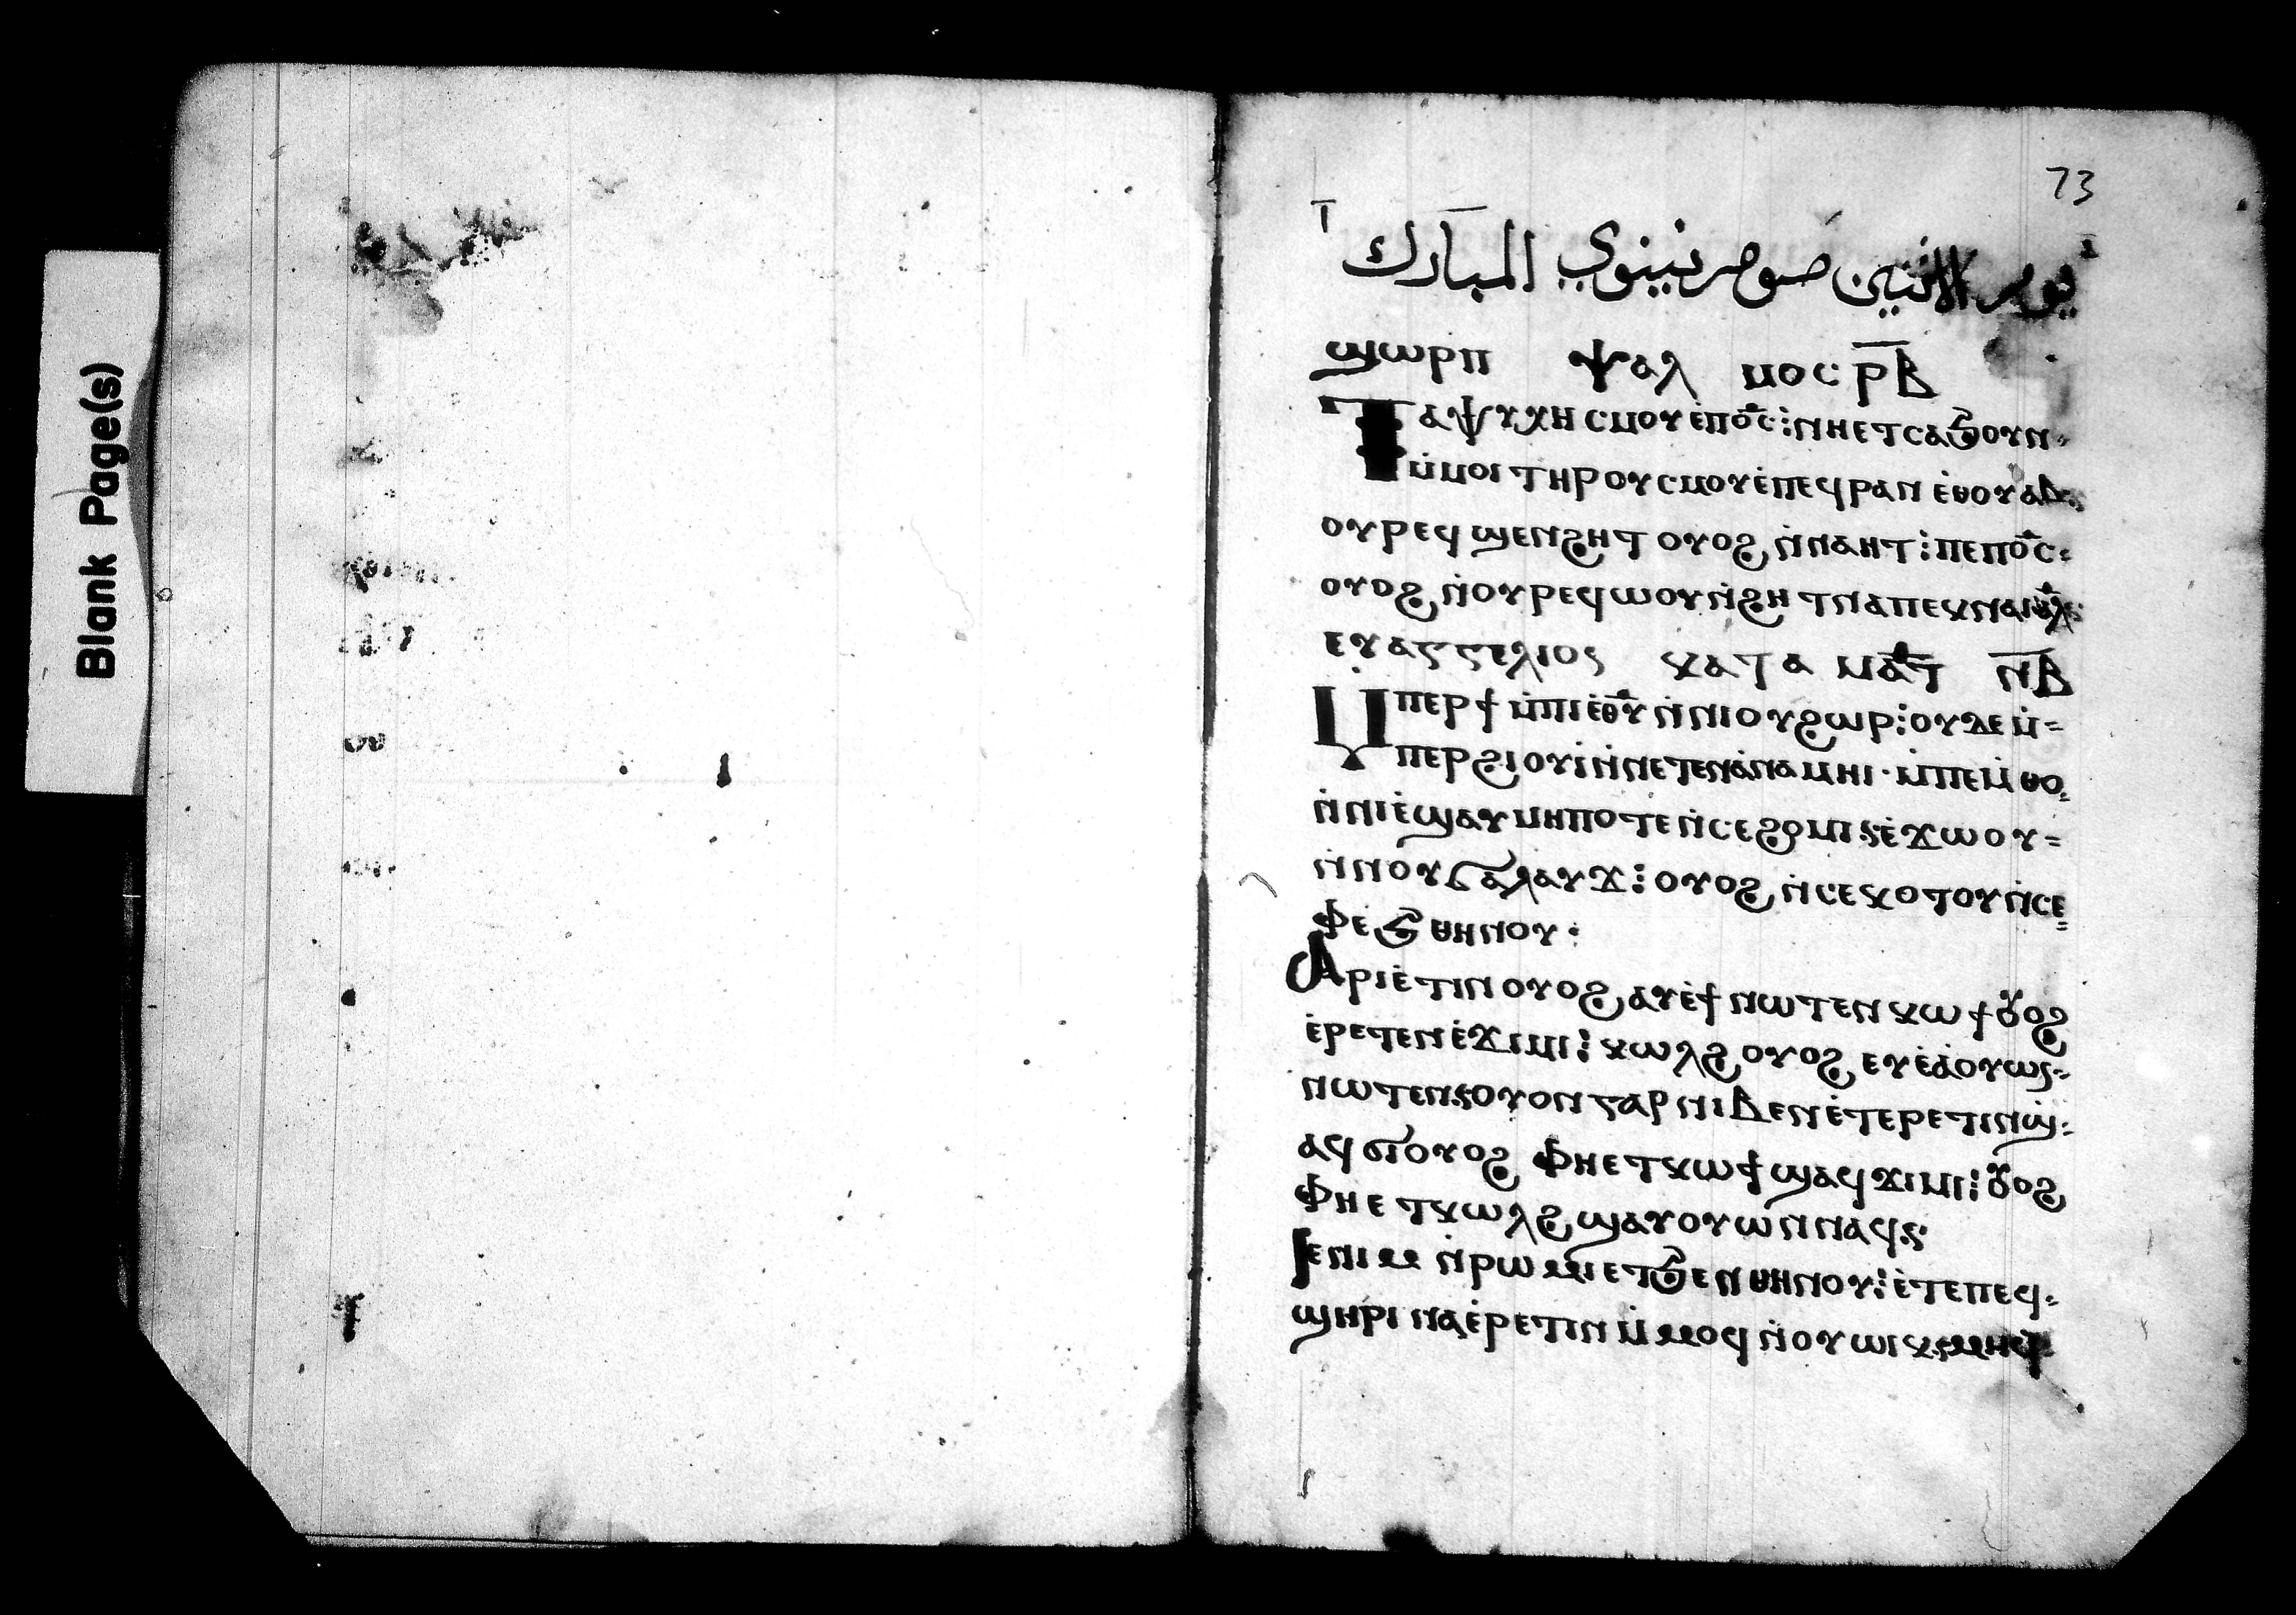 Blank Page(s)
73
يوم الاثنين صوم نينوي المبارك
ϣⲱⲣⲡ ⲯⲁⲗ ⲙⲟⲥ ⲣ̅ⲃ̅
Ⲧⲁⲯⲩⲭⲏ ⲥⲙⲟⲩ ⲉ̇ⲡⲟ̅ⲥ̅⁝ ⲛⲏⲉⲧⲥⲁϧⲟⲩⲛ⸗
ⲙ̇ⲙⲟⲓ ⲧⲏⲣⲟⲩ ⲥⲙⲟⲩ ⲉ̇ⲡⲉϥⲣⲁⲛ ⲉ̇ⲑⲟⲩⲁⲃ
ⲟⲩⲣⲉϥϣⲉⲛϩⲏⲧ ⲟⲩⲟϩ ⲛ̇ⲛⲁⲏⲧ⁝ ⲡⲉⲡⲟ̅ⲥ̅⸗
ⲟⲩⲟϩ ⲛ̇ⲟⲩⲣⲉϥⲱⲟⲩⲛ̇ϩⲏⲧ ⲛⲁⲡⲉϥⲛⲁⲓ
ⲉⲩⲁⲅⲅⲉⲗⲓⲟⲥ ⲕⲁⲧⲁ ⲙⲁⲧ ⲛ̅ⲃ̅
Ⲙⲡⲉⲣϯ ⲙ̇ⲡⲓⲉ̇ⲑ̅ⲩ̅ ⲛ̇ⲛⲓⲟⲩϩⲱⲣ⁝ ⲟⲩⲇⲉ ⲙ̇⸗
ⲡⲉⲣϩⲓⲟⲩⲓ̇ ⲛ̇ⲛⲉⲧⲉⲛⲁ̇ⲛⲁⲙⲏⲓ· ⲙ̇ⲡⲉⲙ̇ⲑⲟ
ⲛ̇ⲛⲓⲉ̇ϣⲁⲩ ⲙⲏⲡⲟⲧⲉ ⲛ̇ⲥⲉϩⲱⲙⲓ ⲉ̇ϫⲱⲟⲩ⸗
ⲛ̇ⲛⲟⲩϭⲁⲗⲁⲩϫ⁝ ⲟⲩⲟϩ ⲛ̇ⲥⲉⲕⲟⲧⲟⲩ ⲛ̇ⲥⲉ⸗
ⲫⲉ̇ϧ ⲑⲏⲛⲟⲩ·
Ⲁⲣⲓⲉ̇ⲧⲓⲛ ⲟⲩⲟϩ ⲁⲩⲉ̇ϯ ⲛⲱⲧⲉⲛ ⲕⲱϯ ⲟⲩⲟϩ
ⲉ̇ⲣⲉⲧⲉⲛⲉ̇ϫⲓⲙⲓ⁝ ⲕⲱⲗϩ ⲟⲩⲟϩ ⲉⲩⲉ̇ⲁ̇ⲟⲩⲱⲛ⸗
ⲛⲱⲧⲉⲛ ⲟⲩⲟⲛ ⲅⲁⲣ ⲛⲓⲃⲉⲛ ⲉ̇ⲧⲉⲣⲉⲧⲓⲛ ϣ⸗
ⲁϥϭⲓ ⲟⲩⲟϩ ⲫⲏⲉⲧⲕⲱϯ ϣⲁϥϫⲓⲙⲓ⁝ ⲟⲩⲟϩ
ⲫⲏⲉⲧⲕⲱⲗϩ ϣⲁⲩⲟⲩⲱⲛ ⲛⲁϥ
ⲓⲉ ⲛⲓⲙ ⲛ̇ⲣⲱⲙⲓ ⲉⲧϧⲉⲛ ⲑⲏⲛⲟⲩ⁝ ⲉ̇ⲧⲉⲡⲉϥ⸗
ϣⲏⲣⲓ ⲛⲁⲉ̇ⲣⲉⲧⲓⲛ ⲙ̇ⲙⲟϥ ⲛ̇ⲟⲩⲱⲓⲕ